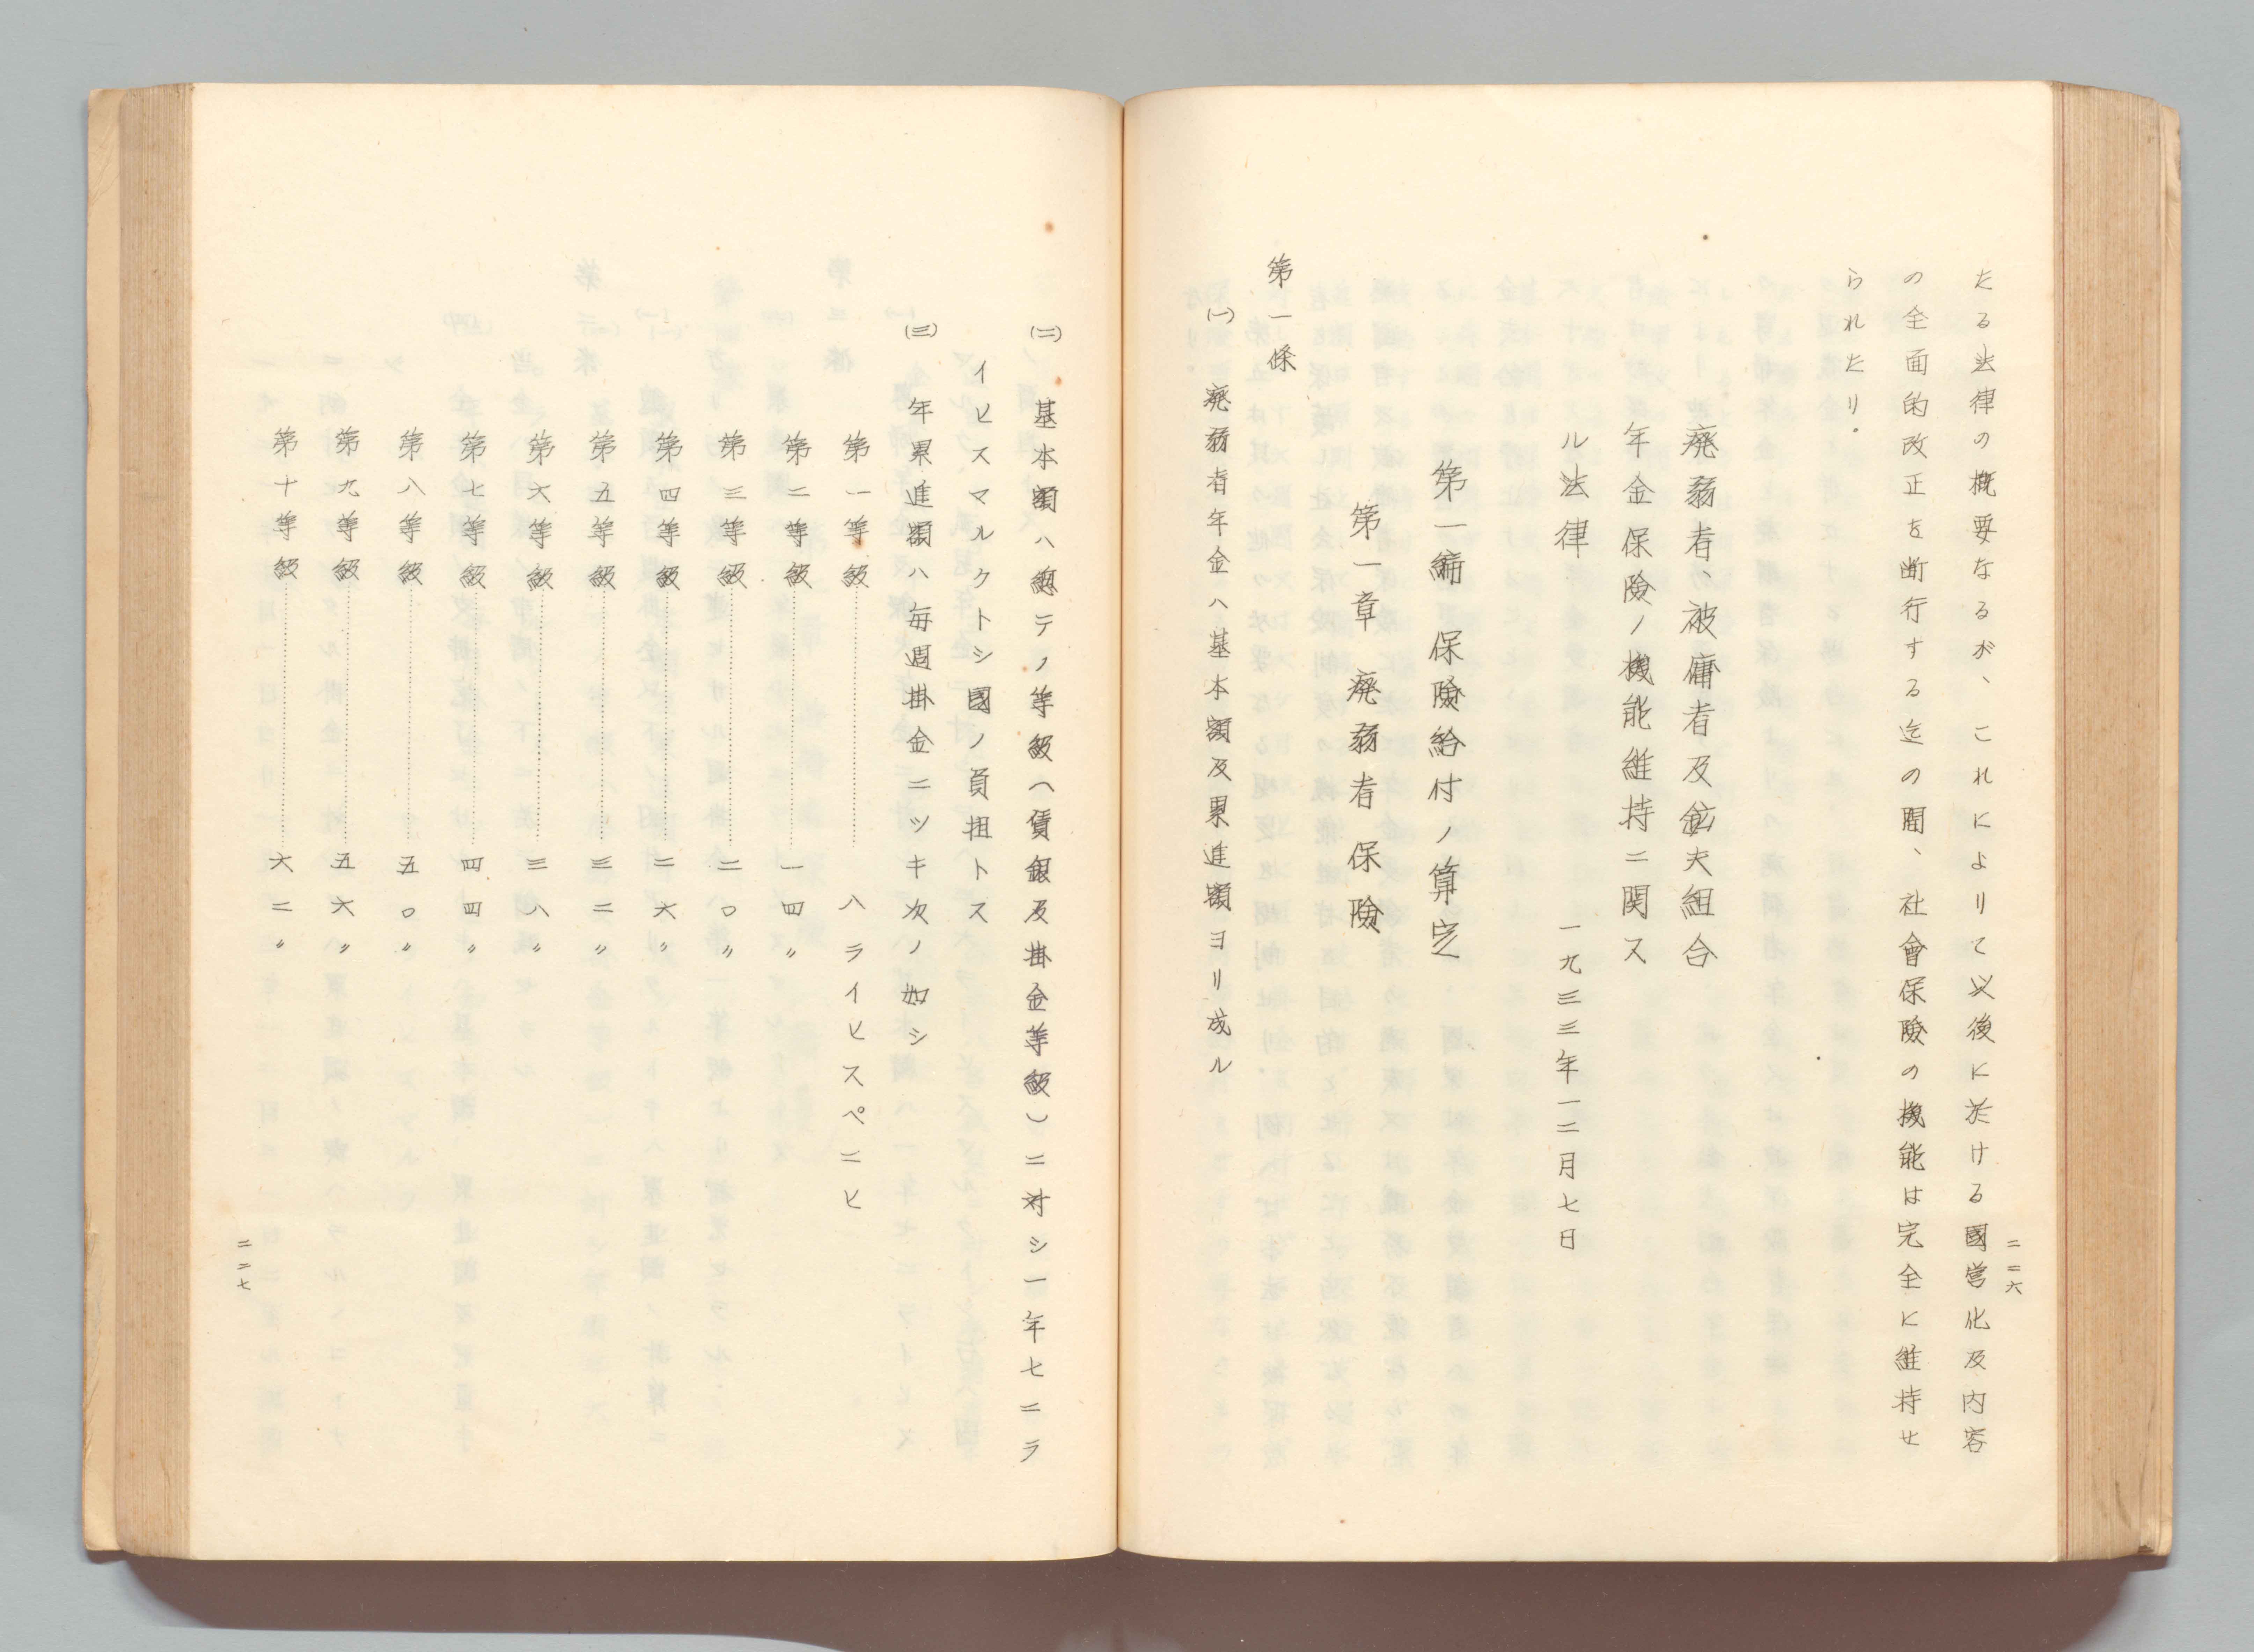 二二六
たる法律の概要なるが、これによりて以後に於ける國営化及内容
の全面的改正を断行する迄の間、社會保険の機能は完全に維持せ
られたり。
廃弱者、被傭者及鉱夫組合
年金保険ノ機能維持ニ関ス
ル法律
一九三三年一二月七日
第一編 保険給付ノ算定
第一章 廃弱者保険
第一條
(一) 廃弱者年金ハ基本額及累進額ヨリ成ル
(二) 基本額ハ總テノ等級(賃銀及掛金等級)ニ対シ一年七二ラ
イヒスマルクトシ國ノ負担トス
(三) 年累進額ハ毎週掛金ニツキ次ノ如シ
第一等級………八ライヒスペニヒ
第二等級………一四〃
第三等級………二〇〃
第四等級………二六〃
第五等級………三二〃
第六等級………三八〃
第七等級………四四〃
第八等級………五〇〃
第九等級………五六〃
第十等級………六二〃
二二七